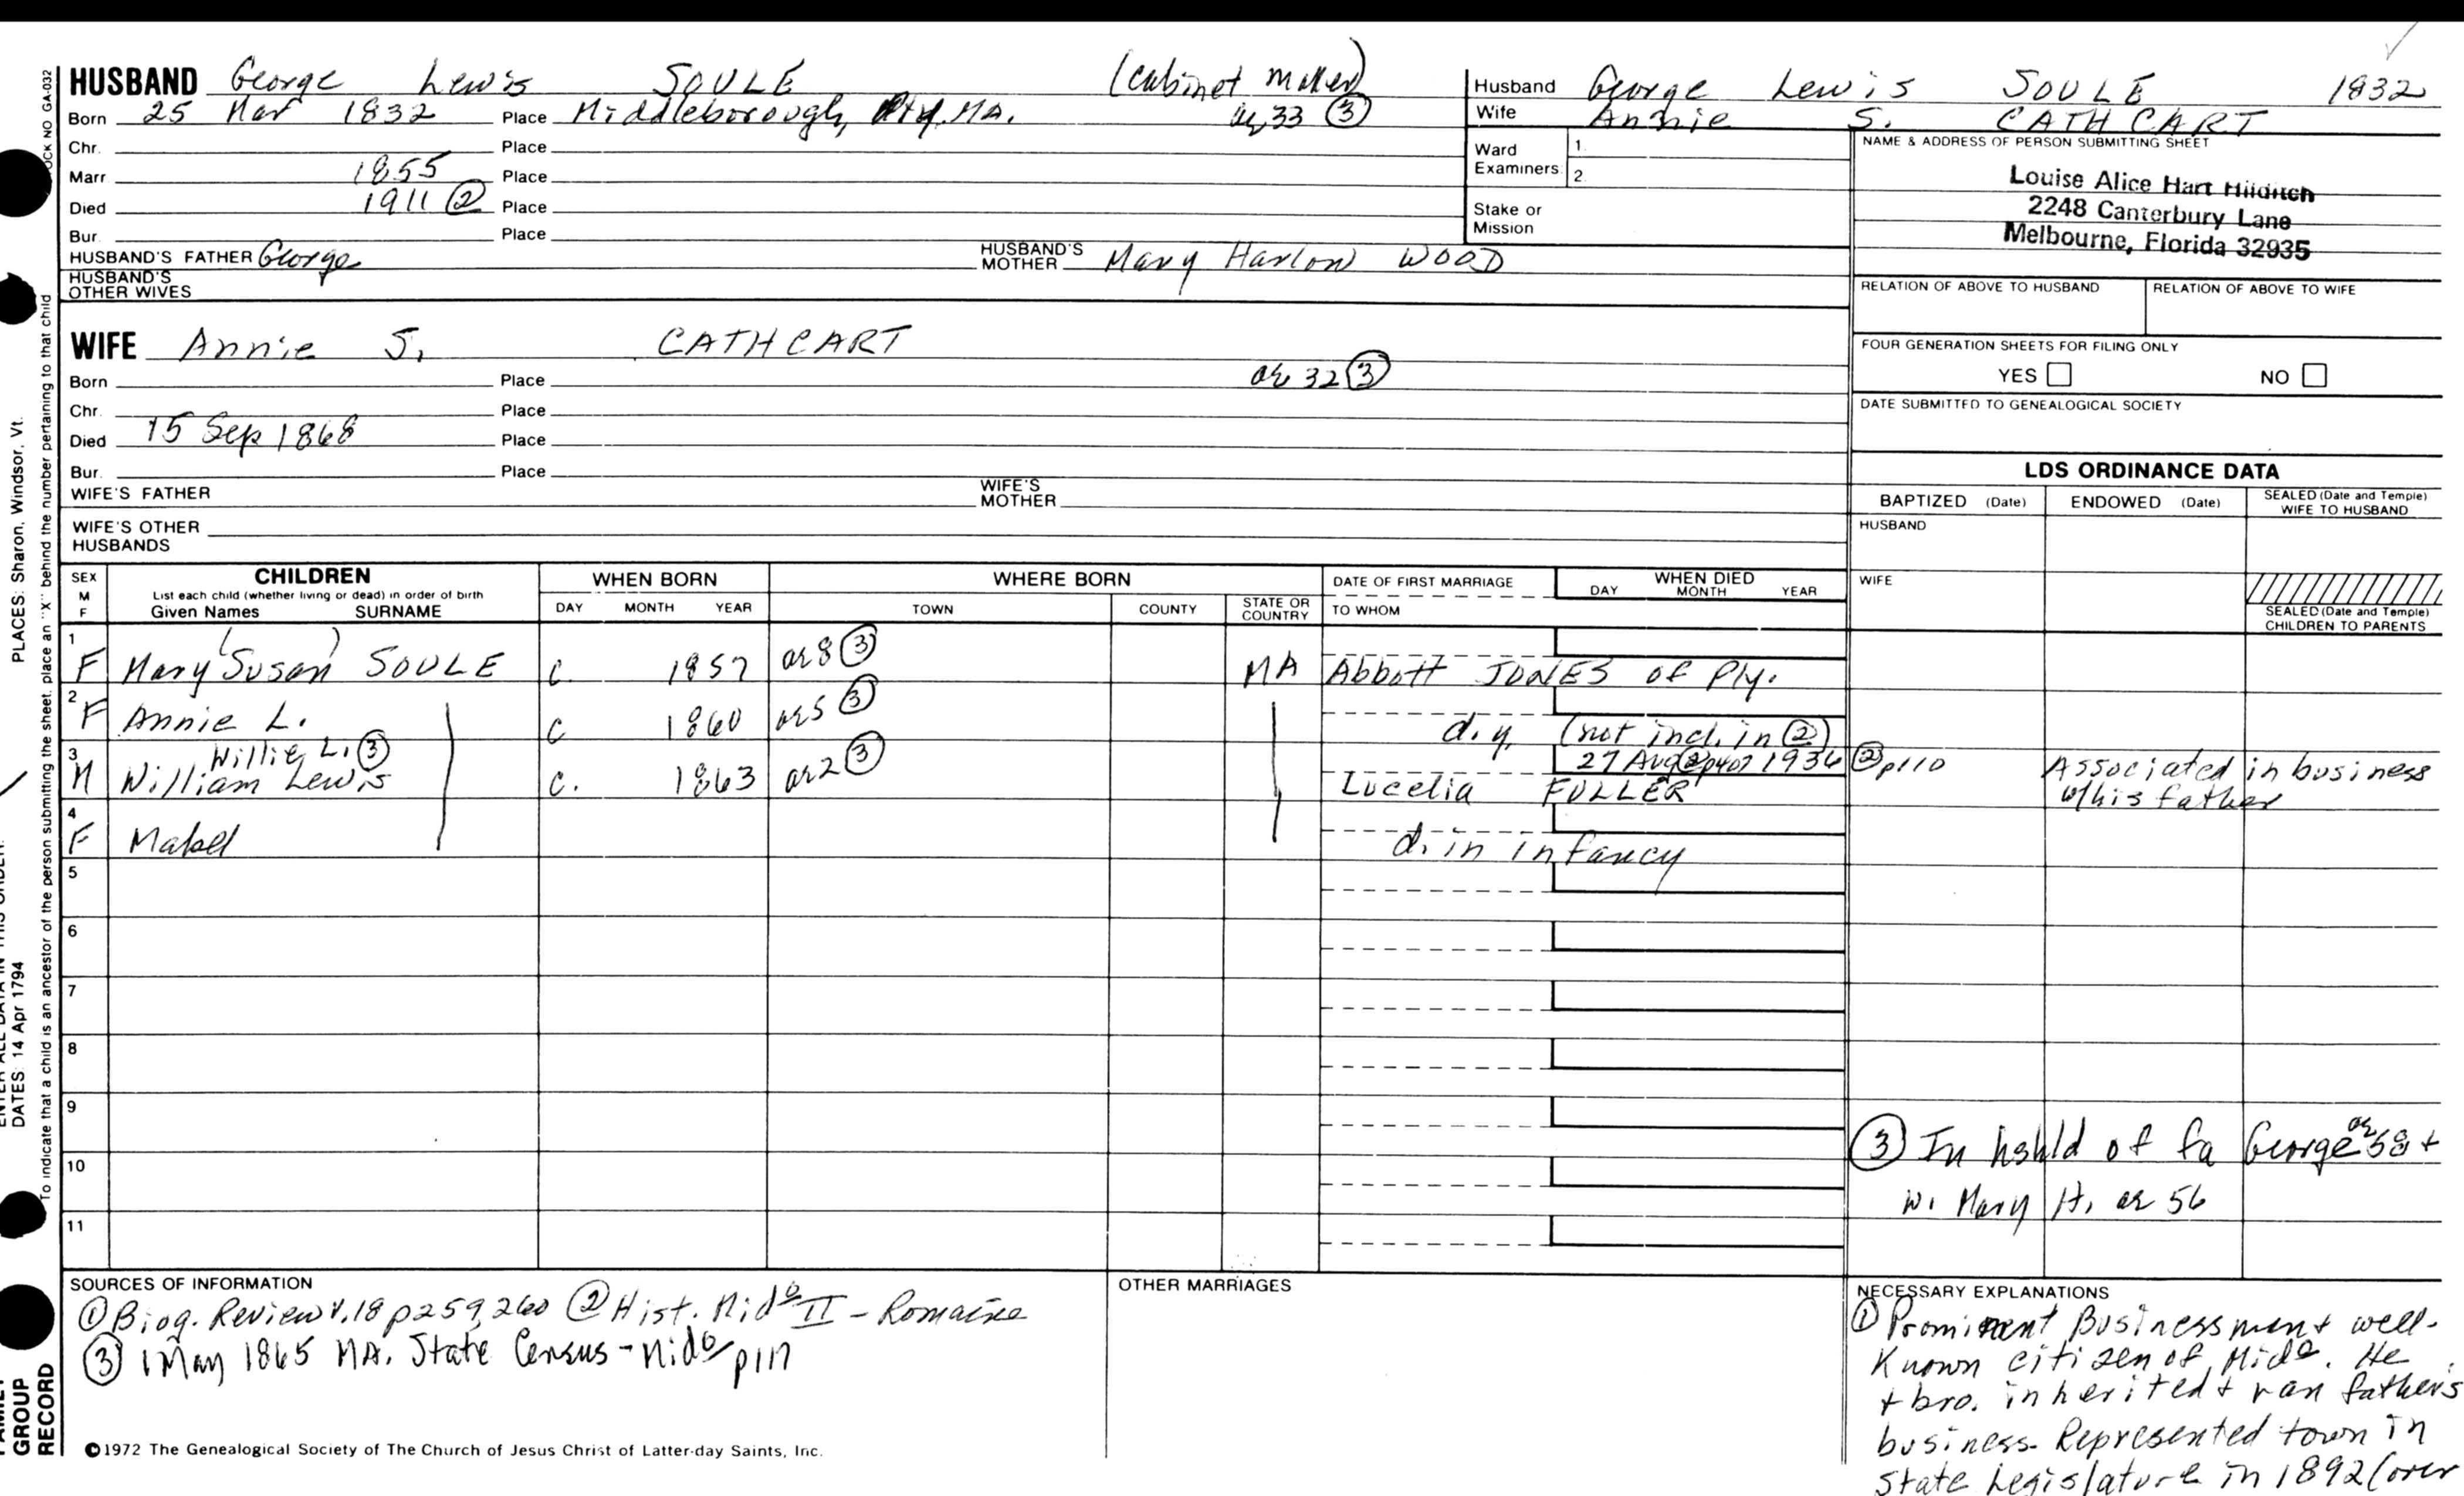 HUSBAND George Lewis SOULE (cabinet maker)
Born 25 Mar 1832 Place Middleborough, Ply. MA. ae 33 ③
Chr. Place
Marr. 1855 Place
Died 1911 ② Place
Bur. Place
HUSBAND'S FATHER George HUSBAND'S MOTHER Mary Harlow WOOD
HUSBAND'S OTHER WIVES
Husband George Lewis SOULE 1832
Wife Annie S. CATHCART
Ward Examiners 1. 2.
Stake or Mission
NAME & ADDRESS OF PERSON SUBMITTING SHEET
Louise Alice Hart Hilditch
2248 Canterbury Lane
Melbourne, Florida 32935
RELATION OF ABOVE TO HUSBAND RELATION OF ABOVE TO WIFE
FOUR GENERATION SHEETS FOR FILING ONLY
YES NO
DATE SUBMITTED TO GENEALOGICAL SOCIETY
WIFE Annie S. CATHCART
Born Place ae 32 ③
Chr. Place
Died 15 Sep 1868 Place
Bur. Place
WIFE'S FATHER WIFE'S MOTHER
WIFE'S OTHER HUSBANDS
LDS ORDINANCE DATA
BAPTIZED (Date) ENDOWED (Date) SEALED (Date and Temple) WIFE TO HUSBAND
HUSBAND
WIFE
SEALED (Date and Temple) CHILDREN TO PARENTS
SEX M F
CHILDREN
List each child (whether living or dead) in order of birth
Given Names SURNAME
WHEN BORN
DAY MONTH YEAR
WHERE BORN
TOWN COUNTY STATE OR COUNTRY
DATE OF FIRST MARRIAGE
TO WHOM
WHEN DIED
DAY MONTH YEAR
1 F Mary (Susan) SOULE c. 1857 ae 8 ③ MA Abbott JONES of Ply.
2 F Annie L. c 1860 ae 5 ③ d.y. (not incl. in ②)
3 Willie L. ③ 27 Aug ② p407 1936 ② p110 Associated in business
M William Lewis c. 1863 ae 2 ③ Lucelia FULLER w/his father
4 F Mabel d. in infancy
5
6
7
8
9
10
11
③ In hshld of fa George ae 58 +
w. Mary H. ae 56
SOURCES OF INFORMATION
① Biog. Review v. 18 p259,260 ② Hist. Mido II - Romaine
③ 1 May 1865 MA. State Census - Mido p117
OTHER MARRIAGES
NECESSARY EXPLANATIONS
① Prominent Business man + well-
known citizen of Mido. He
+ bro. inherited + ran father's
business. Represented town in
State Legislature in 1892 (over
©1972 The Genealogical Society of The Church of Jesus Christ of Latter-day Saints, Inc.
OCK NO GA-032
To indicate that a child is an ancestor of the person submitting the sheet, place an "X" behind the number pertaining to that child
PLACES: Sharon, Windsor, Vt.
ENTER ALL DATA IN THIS ORDER:
DATES: 14 Apr 1794
FAMILY
GROUP
RECORD